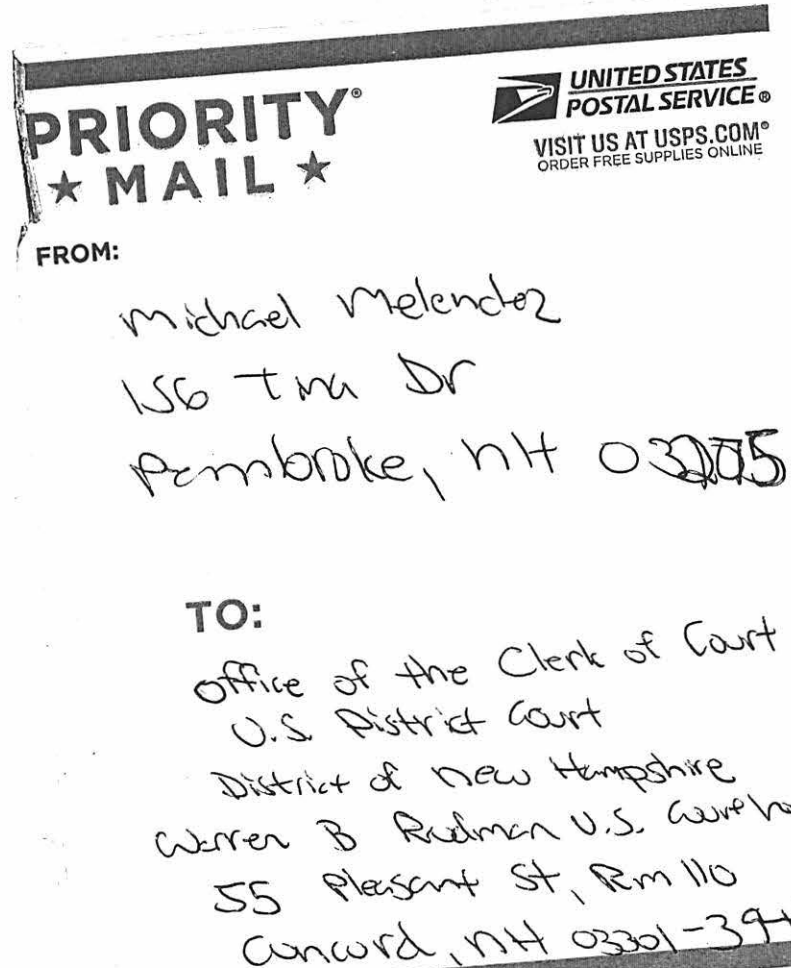 PRIORITY®
★ MAIL ★
UNITED STATES
POSTAL SERVICE®
VISIT US AT USPS.COM®
ORDER FREE SUPPLIES ONLINE
FROM:
Michael Melendez
156 Tina Dr
Pembroke, NH
TO:
office of the Clerk of Court
U.S. District Court
District of New Hampshire
Warren B Rudman U.S.
55 Pleasant St, Rm 110
Concord, NH 03301-394